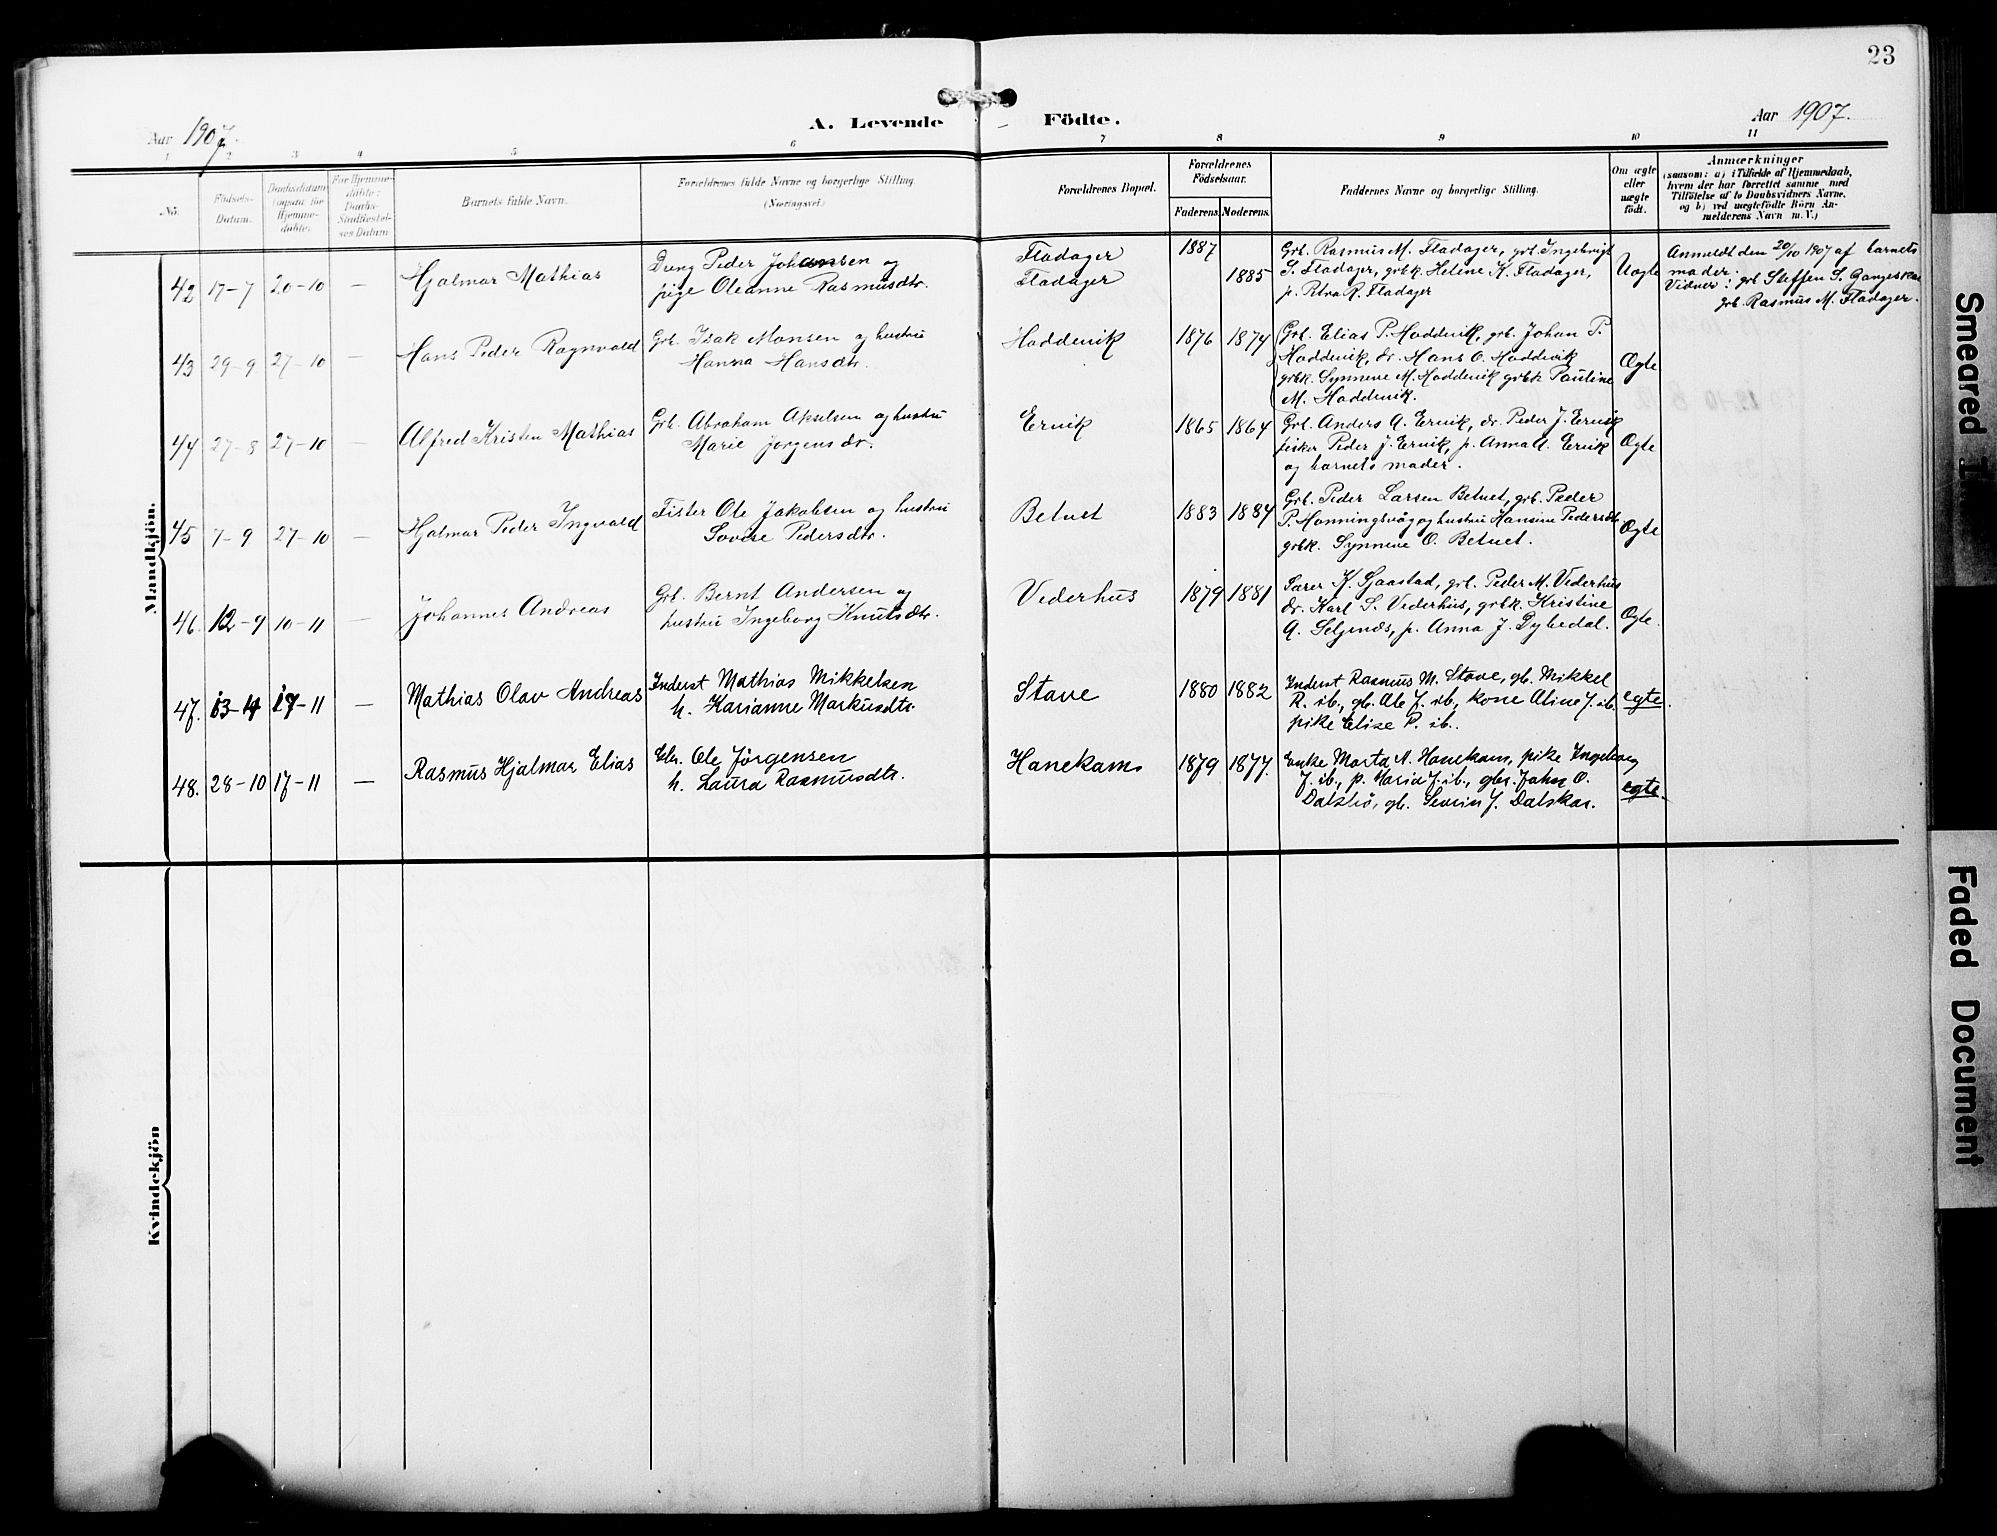 23
Aar 1907.
A. Levende Födte.
Aar 1907.
1 2 3 4 5 6 7 8 9 10 11
No.
Födsels-
Datum.
Daabsdatum
(ogsaa for
Hjemme-
døbte.
For Hjemme-
døbte:
Daabs-
Stadfæstel-
ses Datum
Barnets fulde Navn.
Forældrenes fulde Navne og borgerlige Stilling.
(Næringsvei.)
Forældrenes Bopæl.
Forældrenes
Födselsaar.
Faderens. Moderens.
Faddernes Navne og borgerlige Stilling.
Om ægte
eller
uægte
født.
Anmærkninger
(saasom: a) i Tilfælde af Hjemmedaab,
hvem der har forrettet samme med
Tilföielse af to Daabsvidners Navne.
og b) ved uægtefödte Börn An-
melderens Navn m. V.)
Mandkjön.
42 17-7 20-10 — Hjalmar Mathias
Dreng Peder Johansen og
pige Oleanne Rasmusdtr.
Fladager
Fladager
1887
1885
Grb. Rasmus M. Fladager, grb. Ingebrigt
S. Fladager, grbk. Helene K. Fladager,
p. Petra R. Fladager
Uægte
Anmeldt den 20/10 1907 af barnets
moder.
Vidner: grb Steffen S.
grb. Rasmus M. Fladager.
43 29-9 27-10 — Hans Peder Ragnvald
Grb. Isak Monsen og hustru
Hanna Hansdtr.
Hoddevik 1876 1874
Grb. Elias P. Hoddevik, grb. Johan P.
Hoddevik, dr. Hans O. Hoddevik
grbk. Synneve M. Hoddevik grbk Pauline
M. Hoddevik.
Ægte
44 27-8 27-10 — Alfred Kristen Mathias
Grb. Abraham Akselsen og hustru
Marie Jørgensdr.
Ervik 1865 1864
Grb. Anders A. Ervik, dr. Peder J. Ervik
fisker Peder J. Ervik, p. Anna A. Ervik
og barnets moder.
Ægte
45 7-9 27-10 — Hjalmar Peder Ingvald
Fisker Ole Jakobsen og hustru
Lovise Pedersdtr.
Betuet 1883 1884
Grb. Peder Larsen Betuet, grb. Peder
P. Honningsvåg og hustru Hansine Pedersdtr.
grbk. Synneve O. Betuet.
Ægte
46. 12-9 10-11 — Johannes Andreas
Grb. Bernt Andersen og
hustru Ingeborg Knutsdtr.
Vederhus 1879 1881
K. Sjaastad, grb. Peder M. Vederhus
dr. Karl S. Vederhus, grbk. Kristine
A. Seljenæs, p. Anna J. Dybedal.
Ægte.
47. 13-4 17-11 — Mathias Olav Andreas
Inderst Mathias Mikkelsen
h. Karianne Markusdtr.
Stave 1880 1882
Inderst Rasmus M. Stave, gb. Mikkel
R. ib., gb. Ole J. ib., kone Aline J. ib.
pike Elise P. ib.
egte.
48. 28-10 17-11 — Rasmus Hjalmar Elias
Gbr. Ole Jörgensen
h. Laura Rasmusdtr.
Hanekam 1879 1877.
Enke Marta N. Hanekam, pike Ingeborg
J. ib., p. Maria J. ib., gbr. Johan O.
gb. Severin J. Dalskar.
egte.
Kvindekjön
Smeared
Faded Document